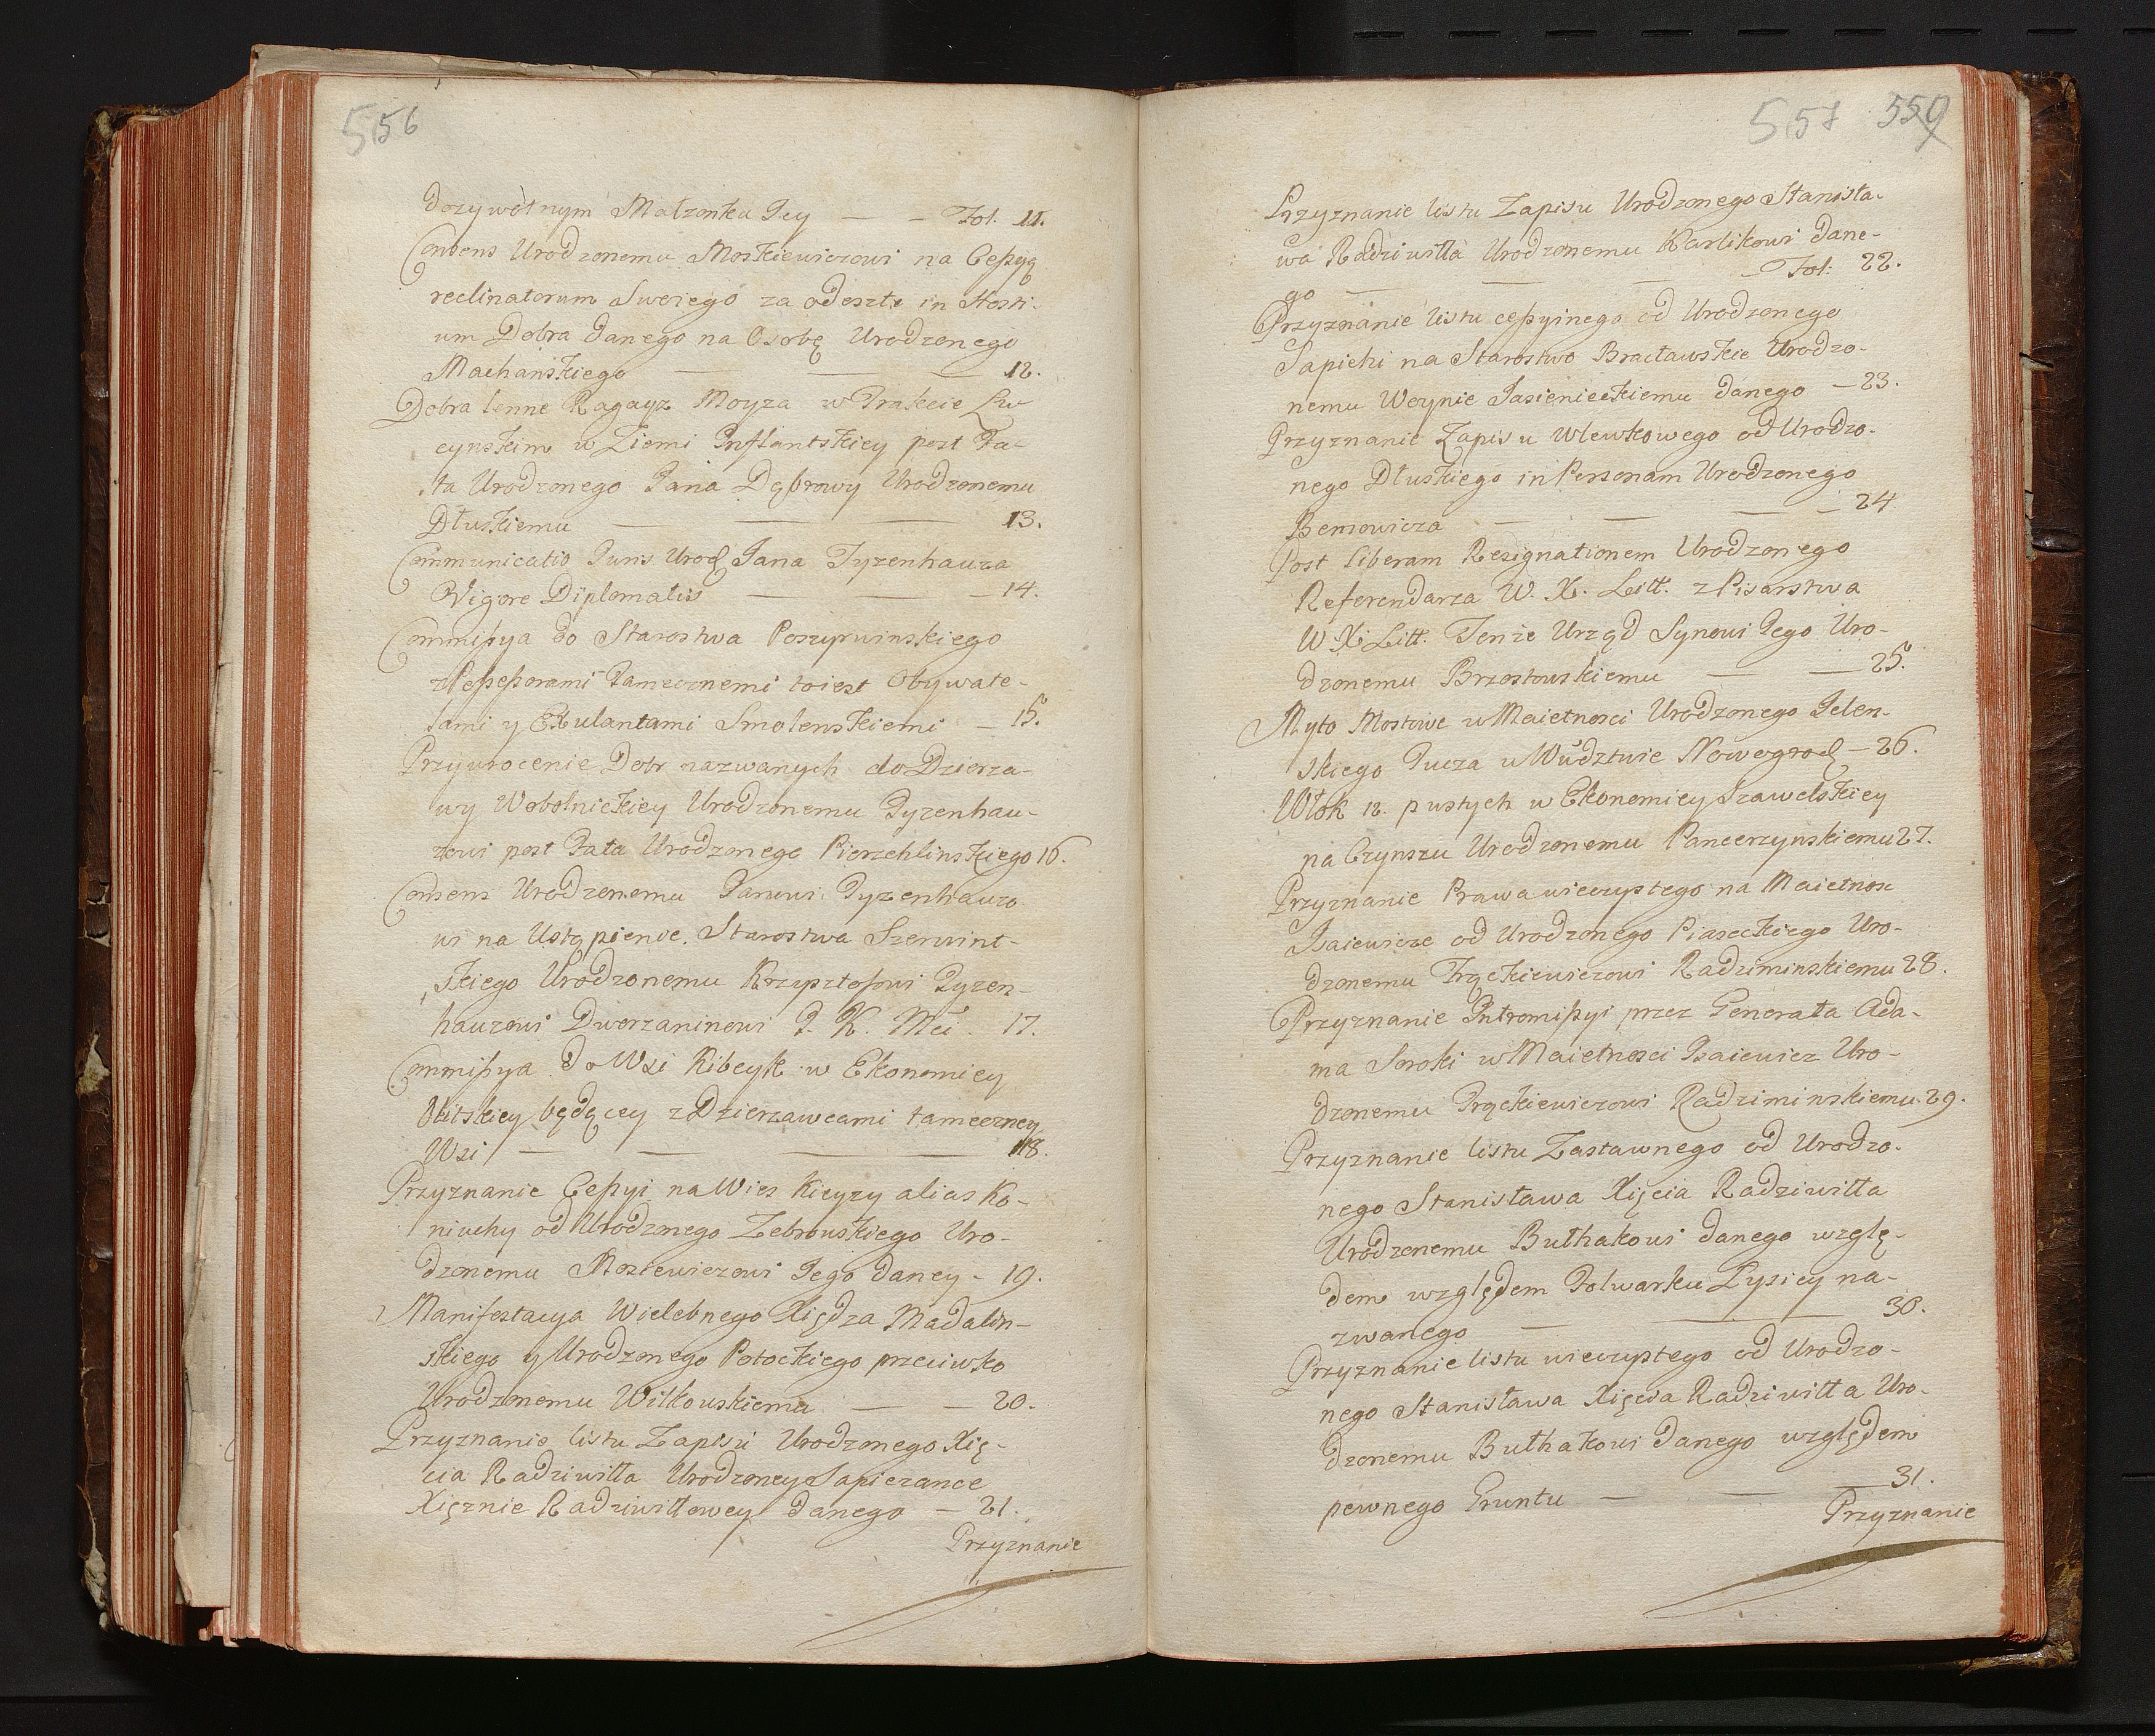 556
dozywotnym Małzonka Jey — — Fol. 11.
Consens Urodzonemu Moskiewiczowi na Cessyą
reclinatorum Swoiego za odeszłe in Hosti-
um Dobra danego na Osobę Urodzonego
Machanskiego — — — 12.
Dobra lenne Ragayz Moyza w Trakcie Lu-
cynskim w Ziemi Inflantskiey post Fa-
ta Urodzonego Jana Dąbrowy Urodzonemu
Dłuskiemu — — — 13.
Communicatio Juris Urod Jana Tyzenhauza
Vigore Diplomatis — — — 14.
Commissya do Starostwa Poszyrwinskiego
z Possessorami Tamecznemi toiest Obywate-
lami y Exulantami Smolenskiemi — 15.
Przywrocenie Dobr nazwanych do Dzierza-
wy Wobolnickiey Urodzonemu Tyzenhau-
zowi post Fata Urodzonego Pierzchlinskiego 16.
Consens Urodzonemu Janowi Tyzenhauzo
wi na Ustąpienie Starostwa Szerwint-
skiego Urodzonemu Krzysztofowi Tyzen-
hauzowi Dworzaninowi J. K. Mci. 17.
Commissya do Wsi Kibeyk w Ekonomiey
Olitskiey będącey z Dzierzawcami tameczney
Wsi — — — — 18.
Przyznanie Cessyi na Wies Kieyzy alias Ko-
niuchy od Urodzonego Zebrowskiego Uro-
dzonemu Moskiewiczowi Jego daney - 19.
Manifestacya Wielebnego Xiędza Madalin-
skiego y Urodzonego Potockiego przeciwko
Urodzonemu Wilkowskiemu — — 20.
Przyznanie listu Zapisu Urodzonego Xię-
cia Radziwiłła Urodzoney Sapiezance
Xięznie Radziwiłłowey danego — 21.
Przyznanie
557 559
Przyznanie listu Zapisu Urodzonego Stanisła-
wa Radziwiłła Urodzonemu Karlikowi dane-
go — — — Fol: 22.
Przyznanie listu cessyinego od Urodzonego
Sapiehi na Starostwo Bracławskie Urodzo-
nemu Woynie Jasienieckiemu danego — 23.
Przyznanie Zapisu Wlewkowego od Urodzo-
nego Dłuskiego in Personam Urodzonego
Bemowicza — — — 24
Post liberam Resignationem Urodzonego
Referendarza W. X. Litt. z Pisarstwa
W X Litt. Tenże Urząd Synowi Jego Uro-
dzonemu Brzostowskiemu — — 25.
Myto Mostowe w Maietnosci Urodzonego Jelen-
skiego Tucza w Wudztwie Nowogrod — 26.
Włok 12. pustych w Ekonomiey Szawelskiey
na Czynszu Urodzonemu Pancerzynskiemu 27.
Przyznanie Prawa wieczystego na Maietnosc
Isaiewicze od Urodzonego Piaseckiego Uro-
dzonemu Frąckiewiczowi Radziminskiemu 28.
Przyznanie Intromissyi przez Generała Ada-
ma Soroki w Maietnosci Isaiewicz Uro-
dzonemu Frąckiewiczowi Radziminskiemu 29.
Przyznanie listu Zastawnego od Urodzo-
nego Stanisława Xięcia Radziwiłła
Urodzonemu Bułhakowi danego wzglę-
dem względem Folwarku Lysicy na-
zwanego — — 30.
Przyznanie listu wieczystego od Urodzo-
nego Stanisława Xięcia Radziwiłła Uro-
dzonemu Bułhakowi danego względem
pewnego Gruntu — — — 31.
Przyznanie